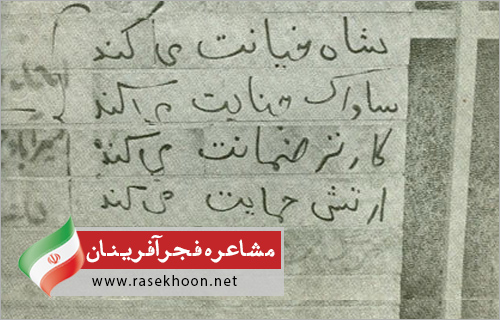 شاه خیانت می کند
ساواک جنایت می کند
کارتر ضمانت می کند
ارتش حمایت می کند
مشاعره فجرآفرینان
www.rasekhoon.net